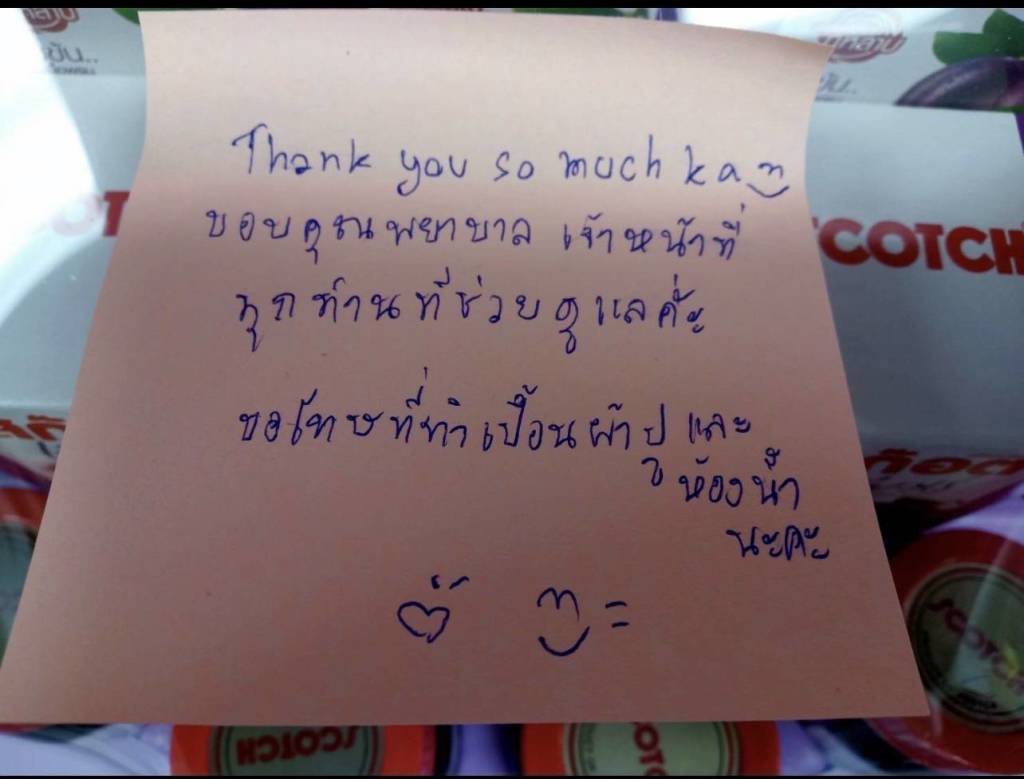 Thank you so much ka
ขอบคุณพยาบาล เจ้าหน้าที่
ทุกท่านที่ช่วยดูแลค่ะ
ขอโทษที่ทำเปื้อนผ้าปู และ
ห้องน้ำ
นะคะ
SCOTCH
SCOTCH
SCOTCH
SCOTCH